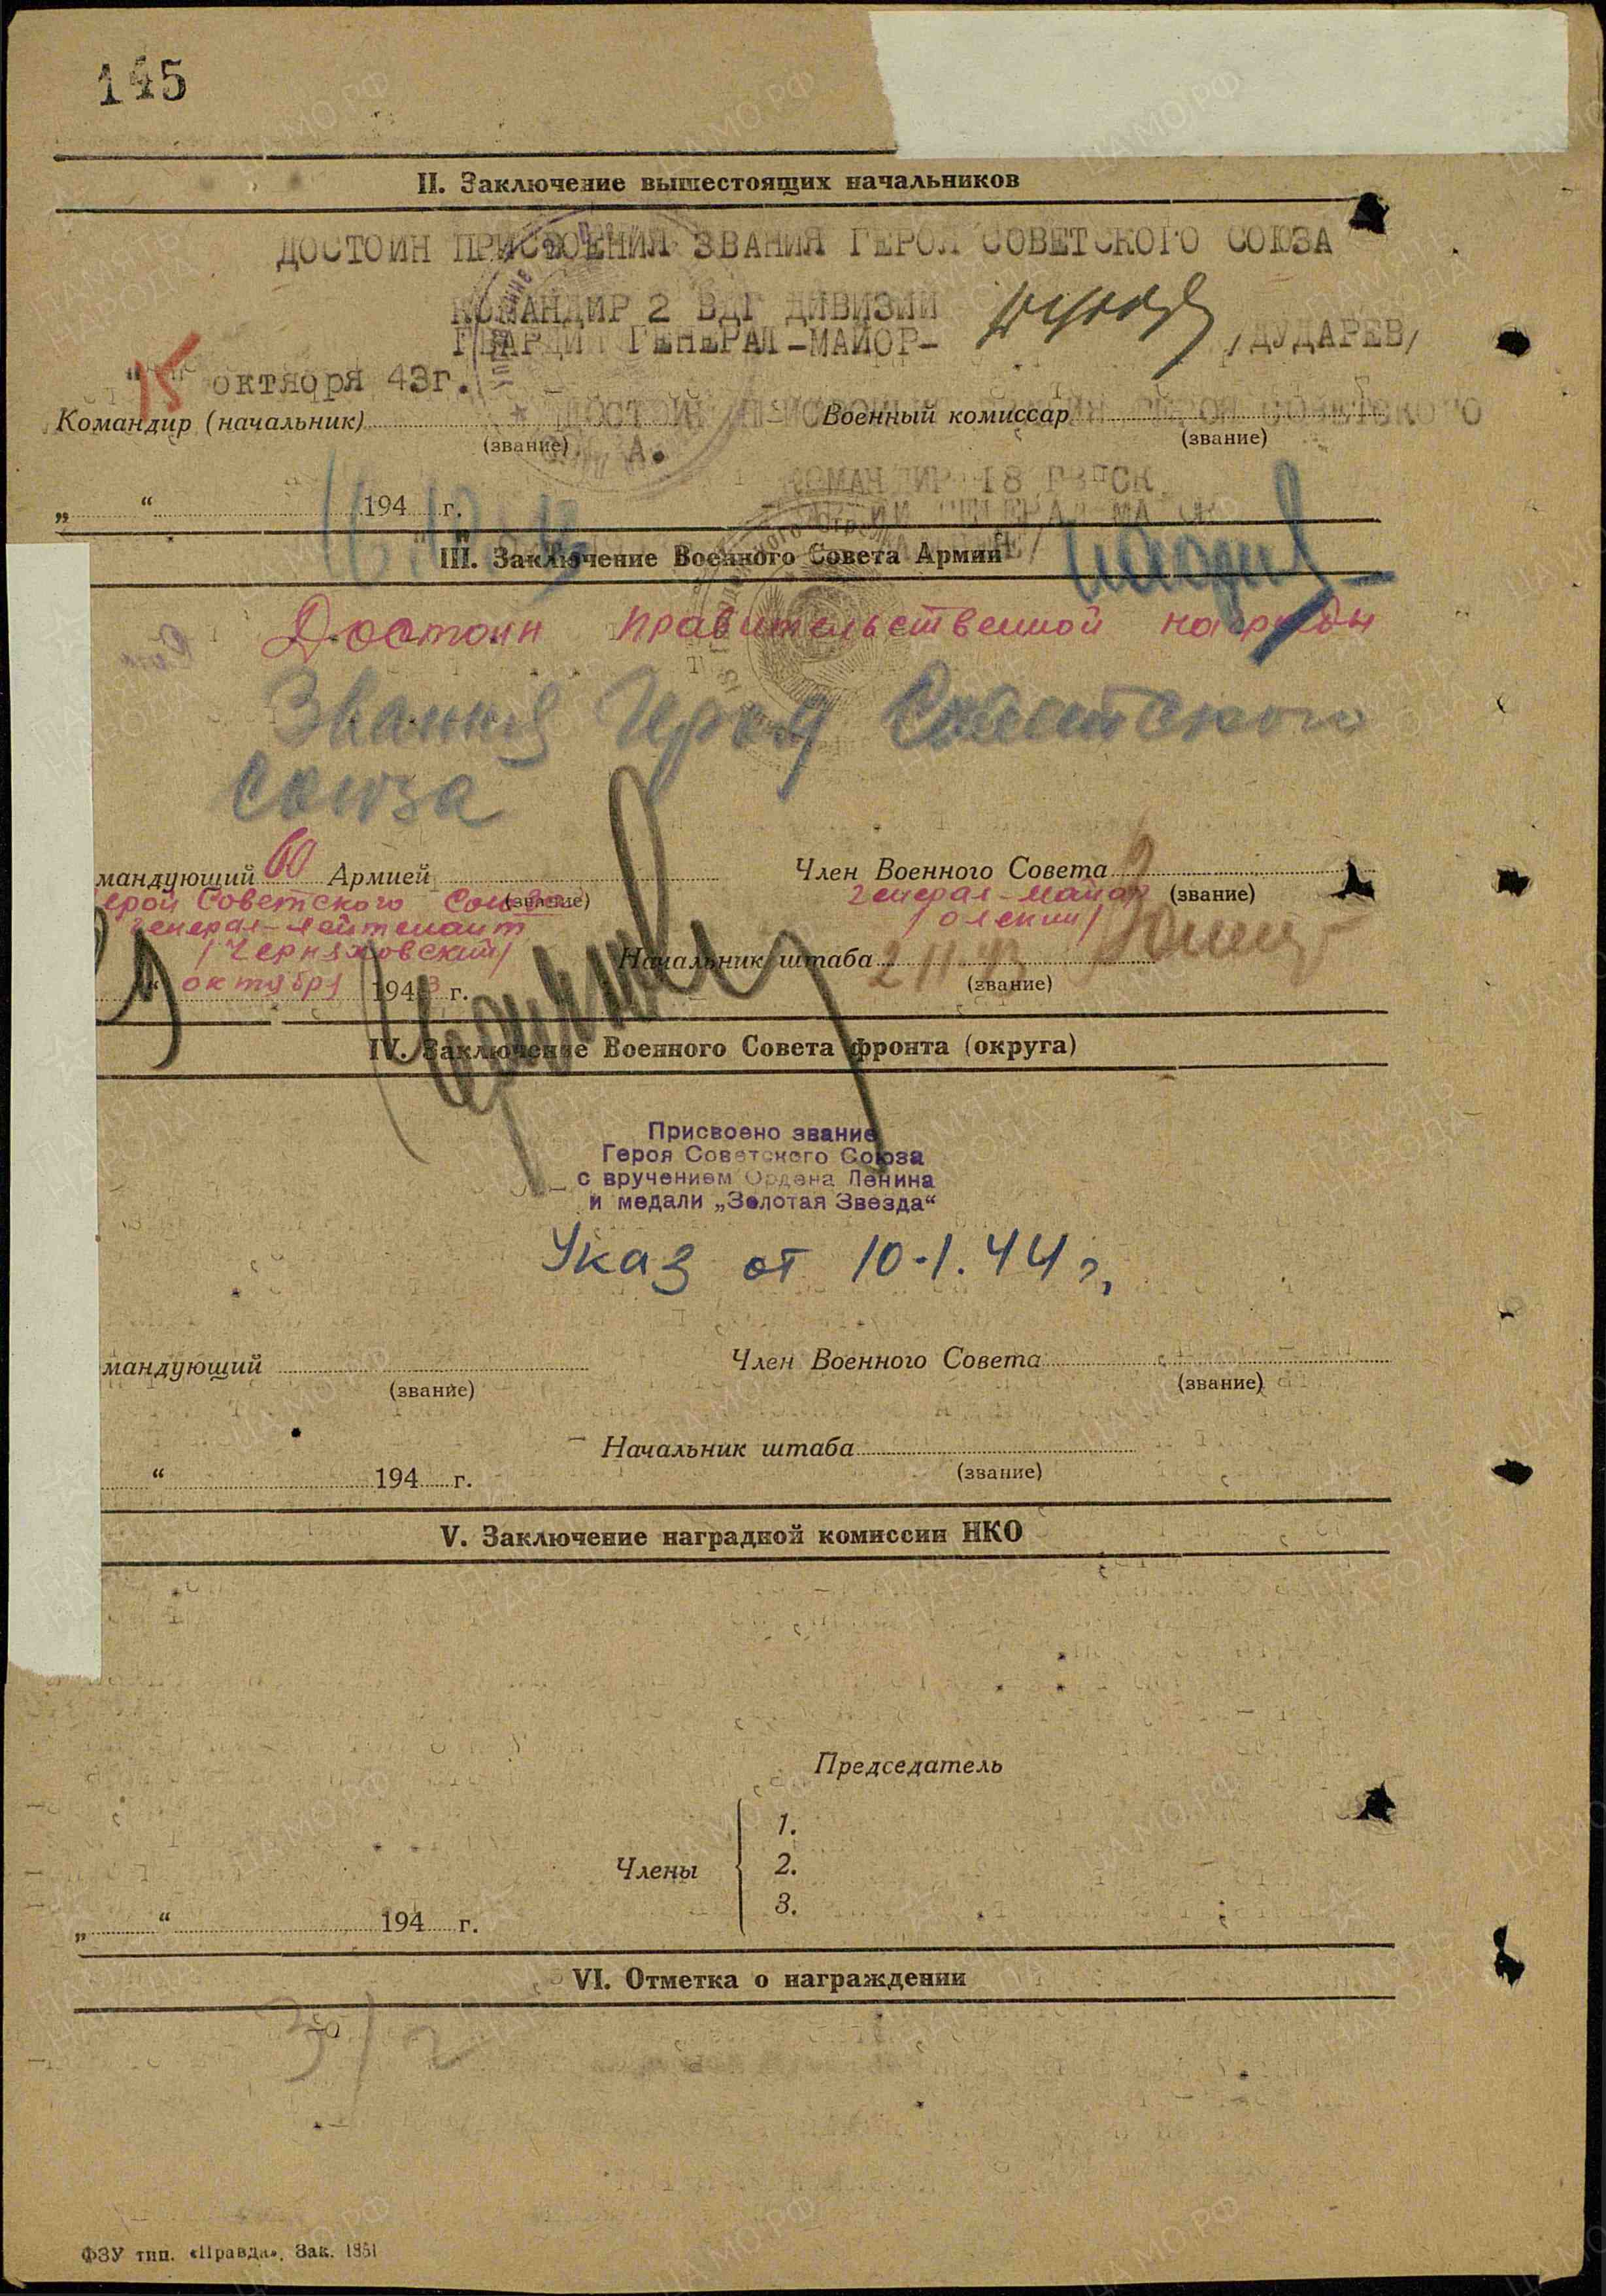 145
II. Заключение вышестоящих начальников
ДОСТОИН ПРИСВОЕНИЯ ЗВАНИЯ ГЕРОЯ СОВЕТСКОГО СОЮЗА
КОМАНДИР 2 ВДГ ДИВИЗИИ
ГВАРДИИ ГЕНЕРАЛ-МАЙОР- /ДУДАРЕВ/
"15" октября 43г.
ДОСТОИН ПРИСВОЕНИЯ ЗВАНИЯ ГЕРОЯ СОВЕТСКОГО
Командир (начальник) Военный комиссар
(звание) (звание)
КОМАНДИР 18 ГВ СК
„ “ 194 г.
III. Заключение Военного Совета Армии
Достоин правительственной награды
Звания Героя Советского
Союза
мандующий 60 Армией Член Военного Совета
(звание) (звание)
ерой Советского Союза генерал-майор
генерал-лейтенант /Оленин/
/Черняховский/ Начальник штаба
(звание)
“ октября 1943 г. 2 11 43
IV. Заключение Военного Совета фронта (округа)
Присвоено звание
Героя Советского Союза
с вручением Ордена Ленина
и медали „Золотая Звезда“
Указ от 10.1.44 г.
мандующий Член Военного Совета
(звание) (звание)
Начальник штаба
“ 194 г. (звание)
V. Заключение наградной комиссии НКО
Председатель
1.
Члены 2.
3.
„ “ 194 г.
VI. Отметка о награждении
ФЗУ тип. «Правда». Зак. 1851